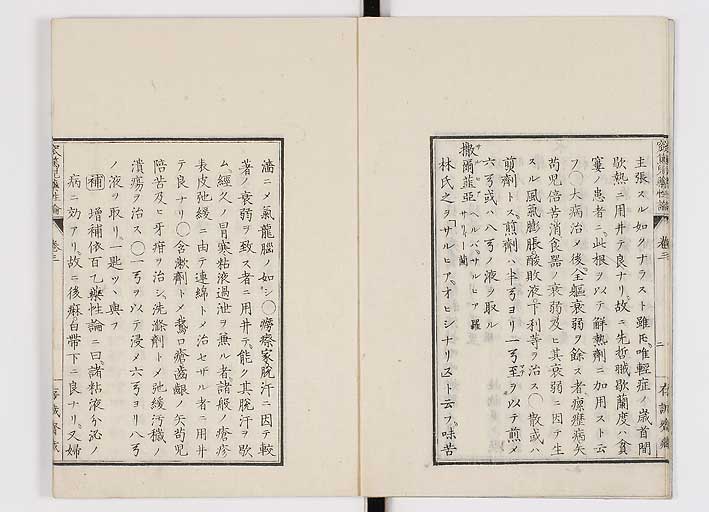 主張スル如クナラスト雖𪜈唯輕症ノ歳首間
歇熱ニ用井テ良ナリ故ニ先哲戚歇蘭度ハ貧
窶ノ患者ニ此根ヲ以テ解熱劑ニ加用スト云
フ〇大病治メ後全軀衰弱ヲ餘ス者瘰癧病矢
苟児倍苦消食器ノ衰弱及ヒ其衰弱ニ因テ生
スル風氣膨脹酸敗液下利等ヲ治ス〇散或ハ
煎劑トス煎劑ハ半ヨリ一ニ至ルヲ以テ煎メ
六或ハ八ノ液ヲ取ル
撒爾菲亞 ヘルバサルヒア 羅 サリー 蘭
林氏之ヲ「サルヒア、オヒシナリスト云フ味苦
濇ニメ氣龍腦ノ如シ〇癆瘵家脱汗ニ因テ較
著ノ衰弱ヲ致ス者ニ用井テ能ク其脱汗ヲ歇
ム經久ノ冒寒粘液過泄ヲ兼ル者諸般ノ瘡疹
表皮弛緩ニ由テ連綿トメ治セサル者ニ用井
テ良ナリ〇含漱劑トメ鵞口瘡齒齦ノ矢苟児
陪苦及ヒ牙疳ヲ治シ洗滌劑トメ弛緩汚穢ノ
潰瘍ヲ治ス〇一ヲ以テ浸メ六ヨリ八
ノ液ヲ取リ一匙ツヽ與フ
補 增補依百乙藥性論ニ曰諸粘液分泌ノ
病ニ効アリ故ニ後痳白帶下ニ良ナリ又婦
卷三